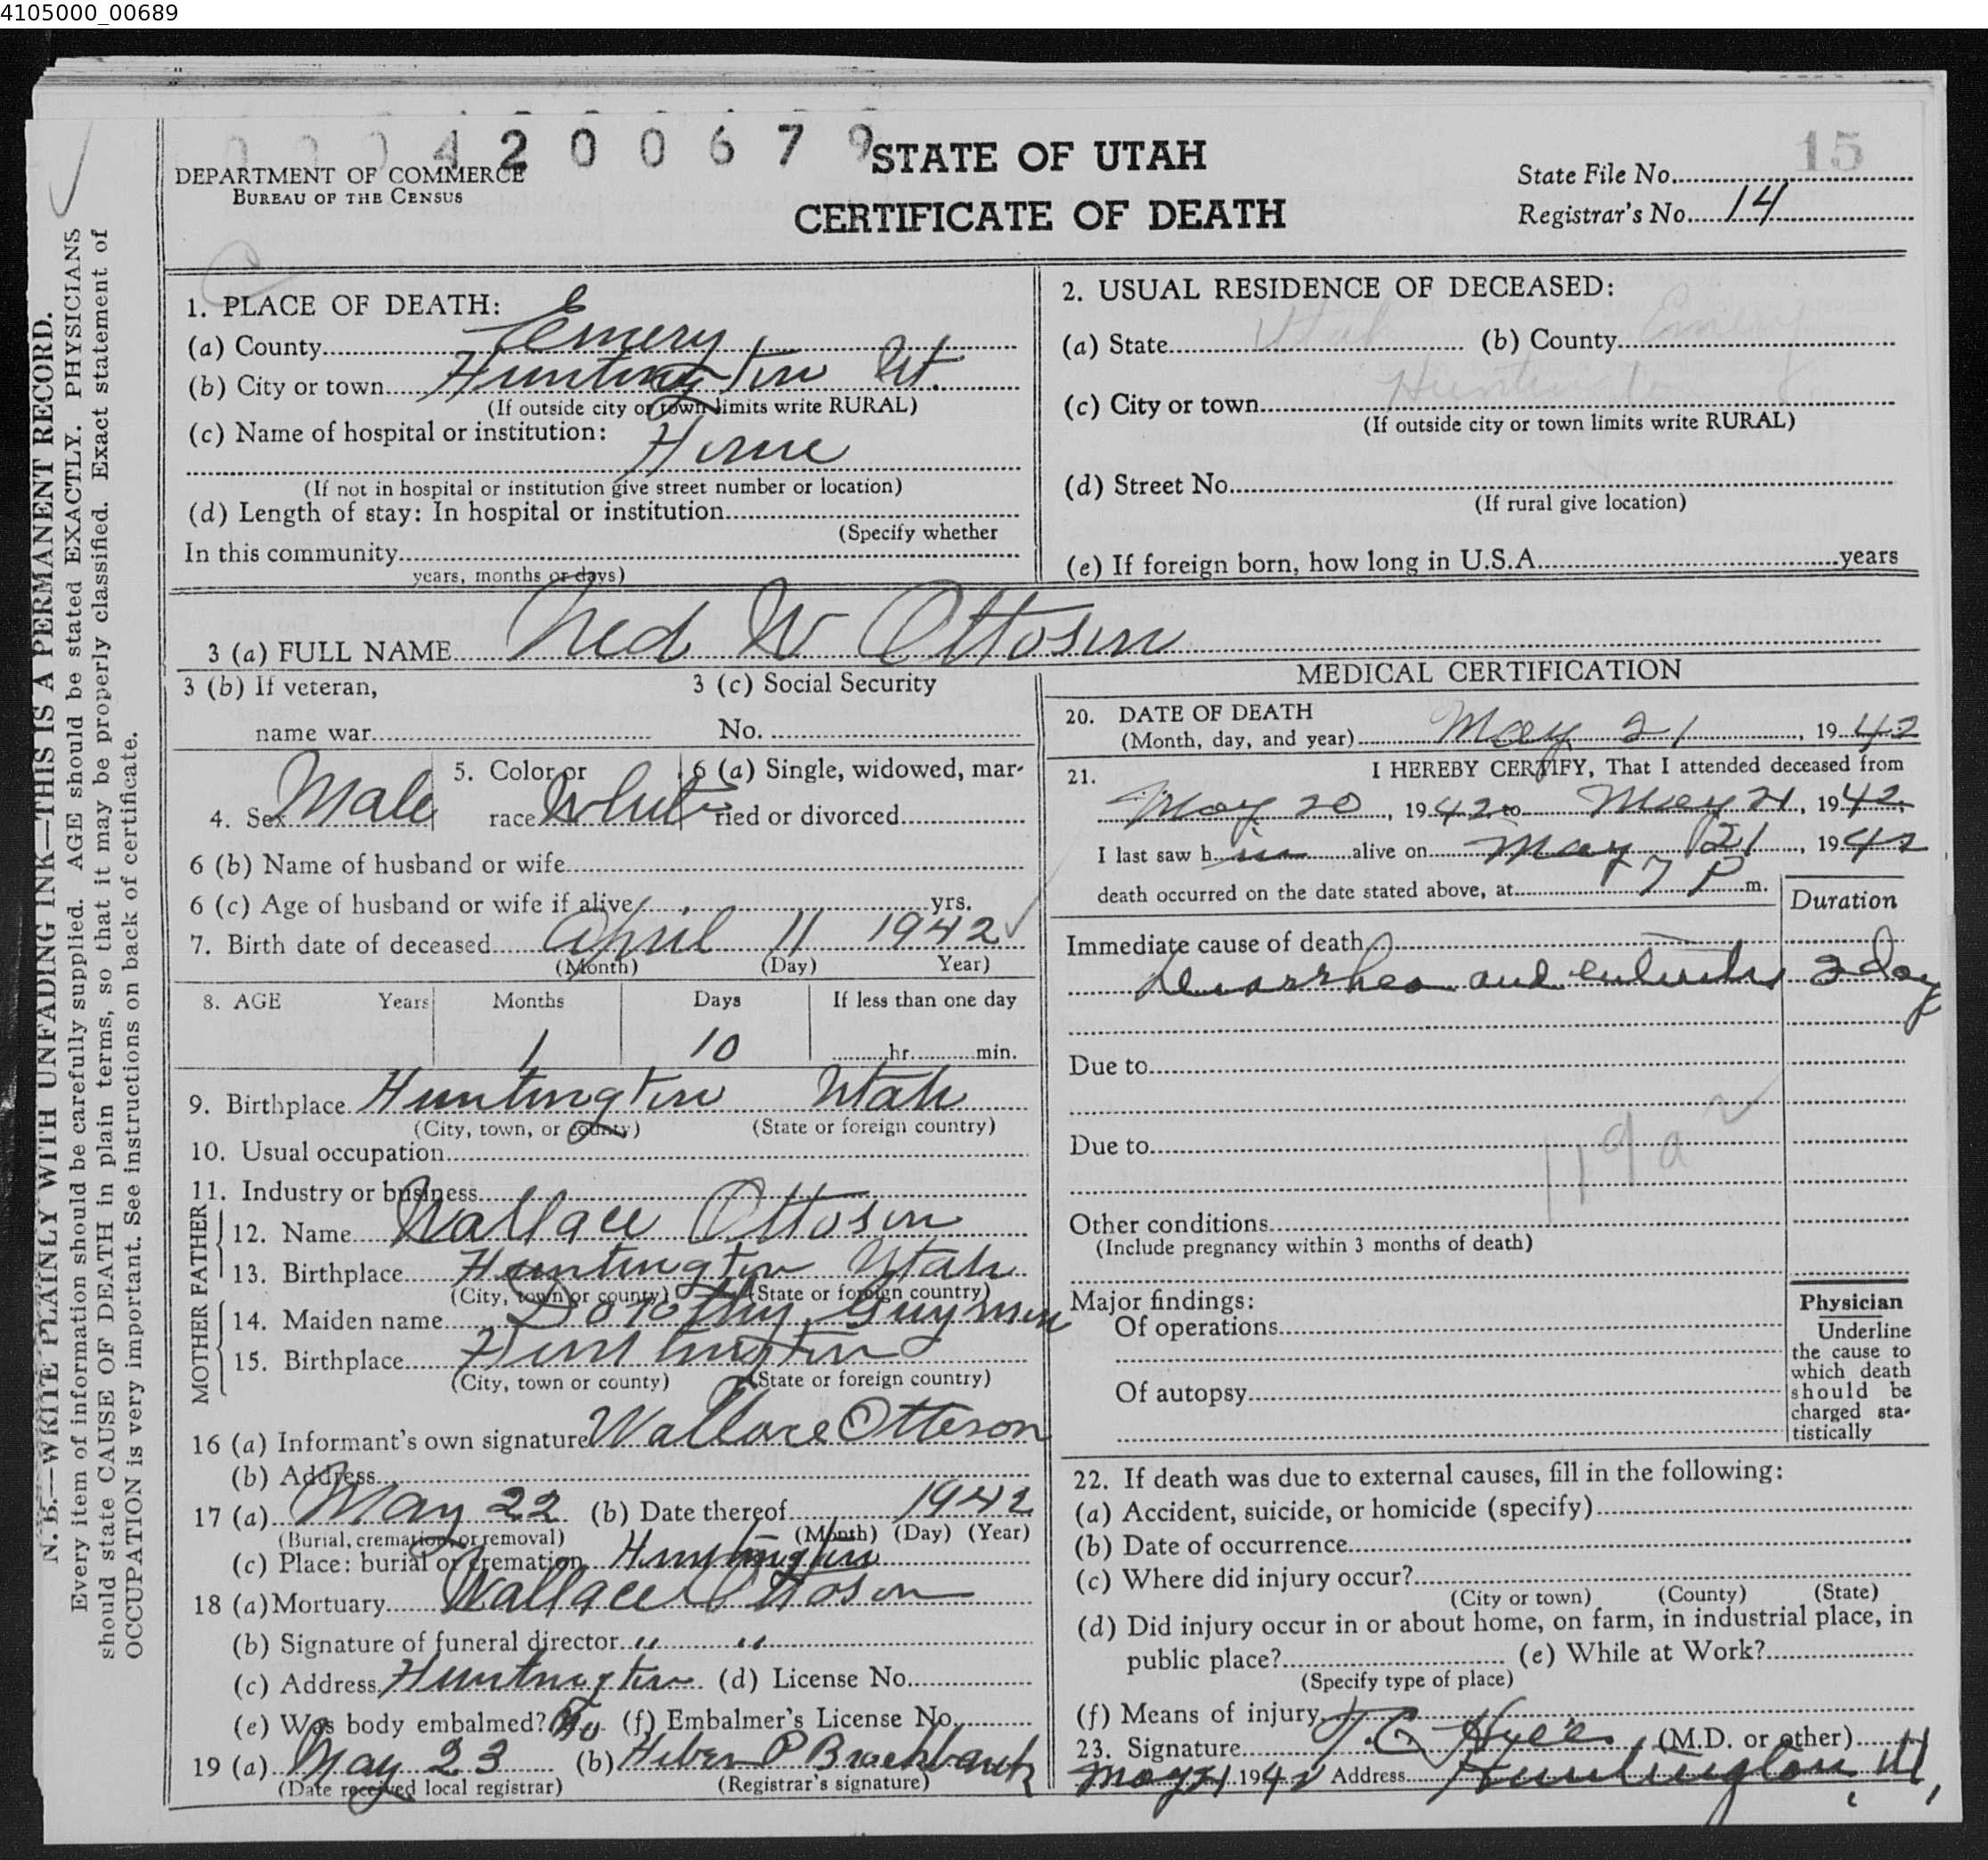 4105000_00689
0004200679
15
DEPARTMENT OF COMMERCE
BUREAU OF THE CENSUS
STATE OF UTAH
CERTIFICATE OF DEATH
State File No.
Registrar's No. 14
N. B.—WRITE PLAINLY WITH UNFADING INK—THIS IS A PERMANENT RECORD.
Every item of information should be carefully supplied. AGE should be stated EXACTLY. PHYSICIANS
should state CAUSE OF DEATH in plain terms, so that it may be properly classified. Exact statement of
OCCUPATION is very important. See instructions on back of certificate.
1. PLACE OF DEATH:
(a) County Emery
(b) City or town Huntington Ut.
(If outside city or town limits write RURAL)
(c) Name of hospital or institution:
Home
(If not in hospital or institution give street number or location)
(d) Length of stay: In hospital or institution
(Specify whether
In this community
years, months or days)
2. USUAL RESIDENCE OF DECEASED:
(a) State Utah (b) County Emery
(c) City or town Huntington
(If outside city or town limits write RURAL)
(d) Street No.
(If rural give location)
(e) If foreign born, how long in U.S.A. years
3 (a) FULL NAME Ned W Ottoson
3 (b) If veteran,
name war
3 (c) Social Security
No.
4. Sex Male
5. Color or
race White
6 (a) Single, widowed, mar-
ried or divorced
6 (b) Name of husband or wife
6 (c) Age of husband or wife if alive yrs.
7. Birth date of deceased April 11 1942
(Month) (Day) Year)
8. AGE Years Months Days If less than one day
1 10 hr. min.
9. Birthplace Huntington Utah
(City, town, or county) (State or foreign country)
10. Usual occupation
11. Industry or business
FATHER
12. Name Wallace Ottoson
13. Birthplace Huntington Utah
(City, town or county) (State or foreign country)
MOTHER
14. Maiden name Dorothy Guymon
15. Birthplace Huntington
(City, town or county) (State or foreign country)
16 (a) Informant's own signature Wallace Otteson
(b) Address
17 (a) May 22 (b) Date thereof 1942
(Burial, cremation, or removal) (Month) (Day) (Year)
(c) Place: burial or cremation Huntington
18 (a) Mortuary Wallace Ottoson
(b) Signature of funeral director " "
(c) Address Huntington (d) License No.
(e) Was body embalmed? No (f) Embalmer's License No.
19 (a) May 23 (b) Heber P Brockbank
(Date received local registrar) (Registrar's signature)
MEDICAL CERTIFICATION
20. DATE OF DEATH
(Month, day, and year) May 21, 1942
21. I HEREBY CERTIFY, That I attended deceased from
May 20, 1942 to May 21, 1942.
I last saw him alive on May 21, 1942
death occurred on the date stated above, at 7 P m.
Duration
Immediate cause of death
Diarrhea and enteritis 2 day
Due to
Due to
119a
Other conditions
(Include pregnancy within 3 months of death)
Major findings:
Of operations
Of autopsy
Physician
Underline
the cause to
which death
should be
charged sta-
tistically
22. If death was due to external causes, fill in the following:
(a) Accident, suicide, or homicide (specify)
(b) Date of occurrence
(c) Where did injury occur?
(City or town) (County) (State)
(d) Did injury occur in or about home, on farm, in industrial place, in
public place? (e) While at Work?
(Specify type of place)
(f) Means of injury
23. Signature (M.D. or other)
May 21 1942 Address Huntington, Ut,